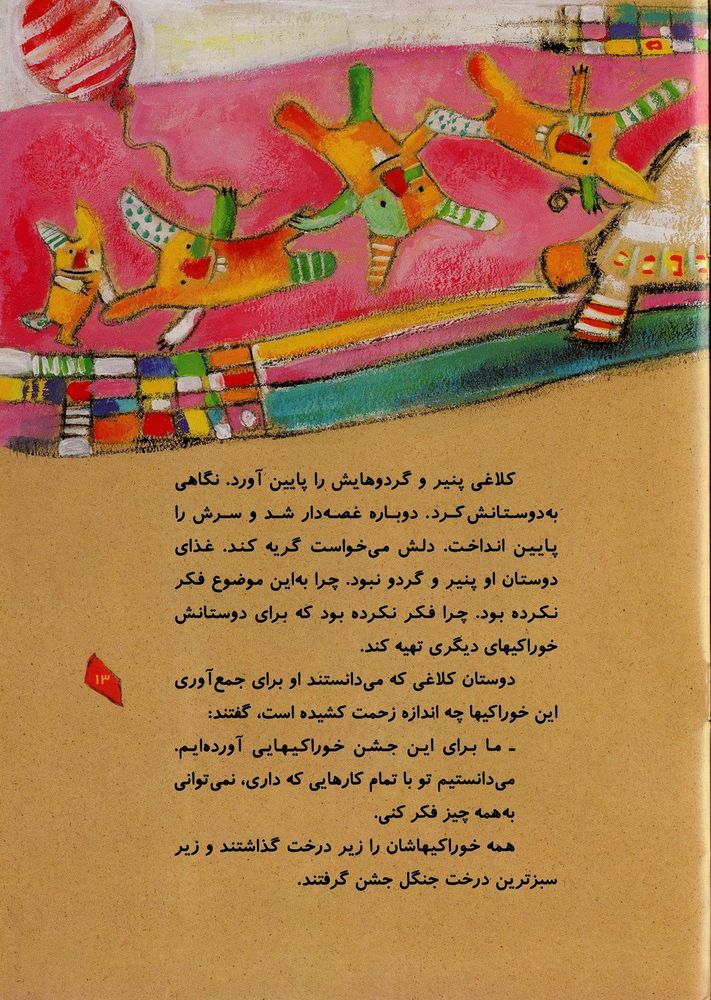 کلاغی پنیر و گردوهایش را پایین آورد. نگاهی
به‌دوستانش‌کرد. دوباره غصه‌دار شد و سرش را
پایین انداخت. دلش می‌خواست گریه کند. غذای
دوستان او پنیر و گردو نبود. چرا به‌این موضوع فکر
نکرده بود. چرا فکر نکرده بود که برای دوستانش
خوراکیهای دیگری تهیه کند.
دوستان کلاغی که می‌دانستند او برای جمع‌آوری
این خوراکیها چه اندازه زحمت کشیده است، گفتند:
ـ ما برای این جشن خوراکیهایی آورده‌ایم.
می‌دانستیم تو با تمام کارهایی که داری، نمی‌توانی
به‌همه چیز فکر کنی.
همه خوراکیهاشان را زیر درخت گذاشتند و زیر
سبزترین درخت جنگل جشن گرفتند.
۱۳